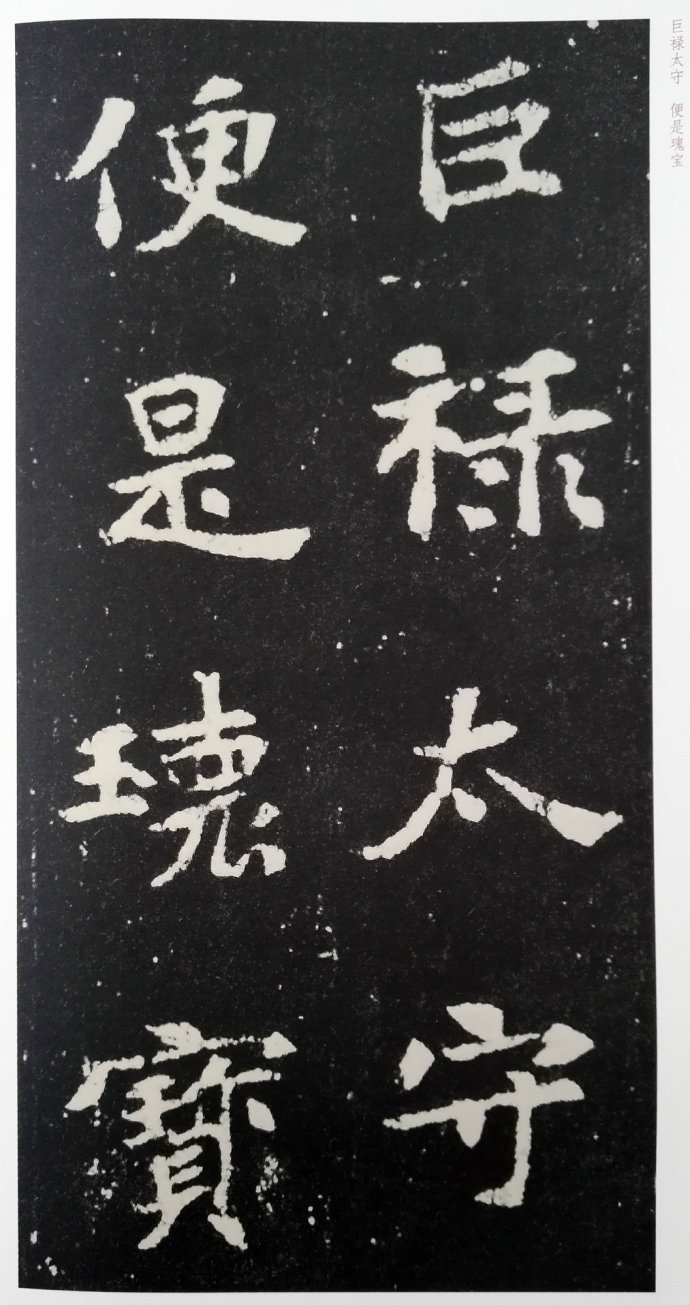 巨禄太守 便是瑰宝
巨禄太守
便是瓌寶